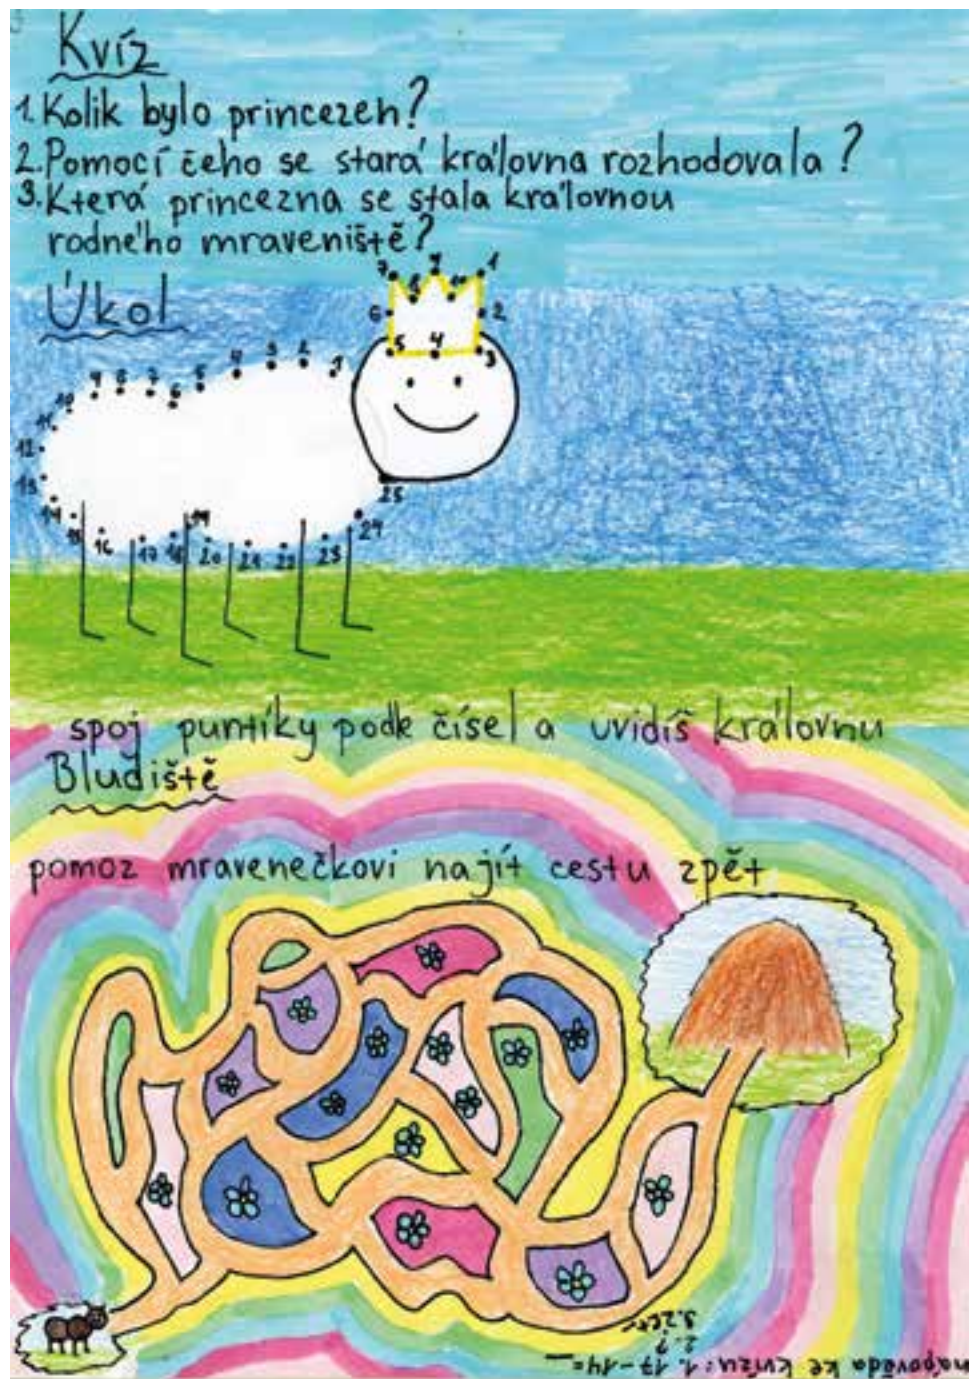 Kvíz
1. Kolik bylo princezen?
2. Pomocí čeho se stará královna rozhodovala?
3. Která princezna se stala královnou
rodného mraveniště?
Úkol
7 9 1
8 10
6 2
5 4 3
10 9 8 7 6 5 4 3 2 1
11
12
13
14 15 16 17 18 19 20 21 22 23 24 25
spoj puntíky podle čísel a uvidíš královnu
Bludiště
pomoz mravenečkovi najít cestu zpět
nápověda ke kvízu: 1. 17-14=
2. ?